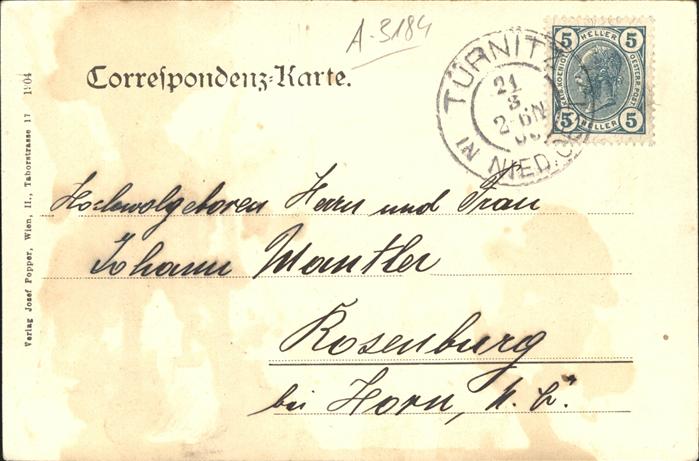 A-3184
Correspondenz-Karte.
TÜRNITZ
21
3
2-6N
IN NIED.Ö
5 HELLER 5
KAIS. KOENIGL. OESTERR. POST.
5 HELLER 5
Hochwolgeboren Herrn und Frau
Johann Mantler
Rosenburg
bei Horn, N. Ö.
Verlag Josef Popper, Wien, II., Taborstrasse 17 1904